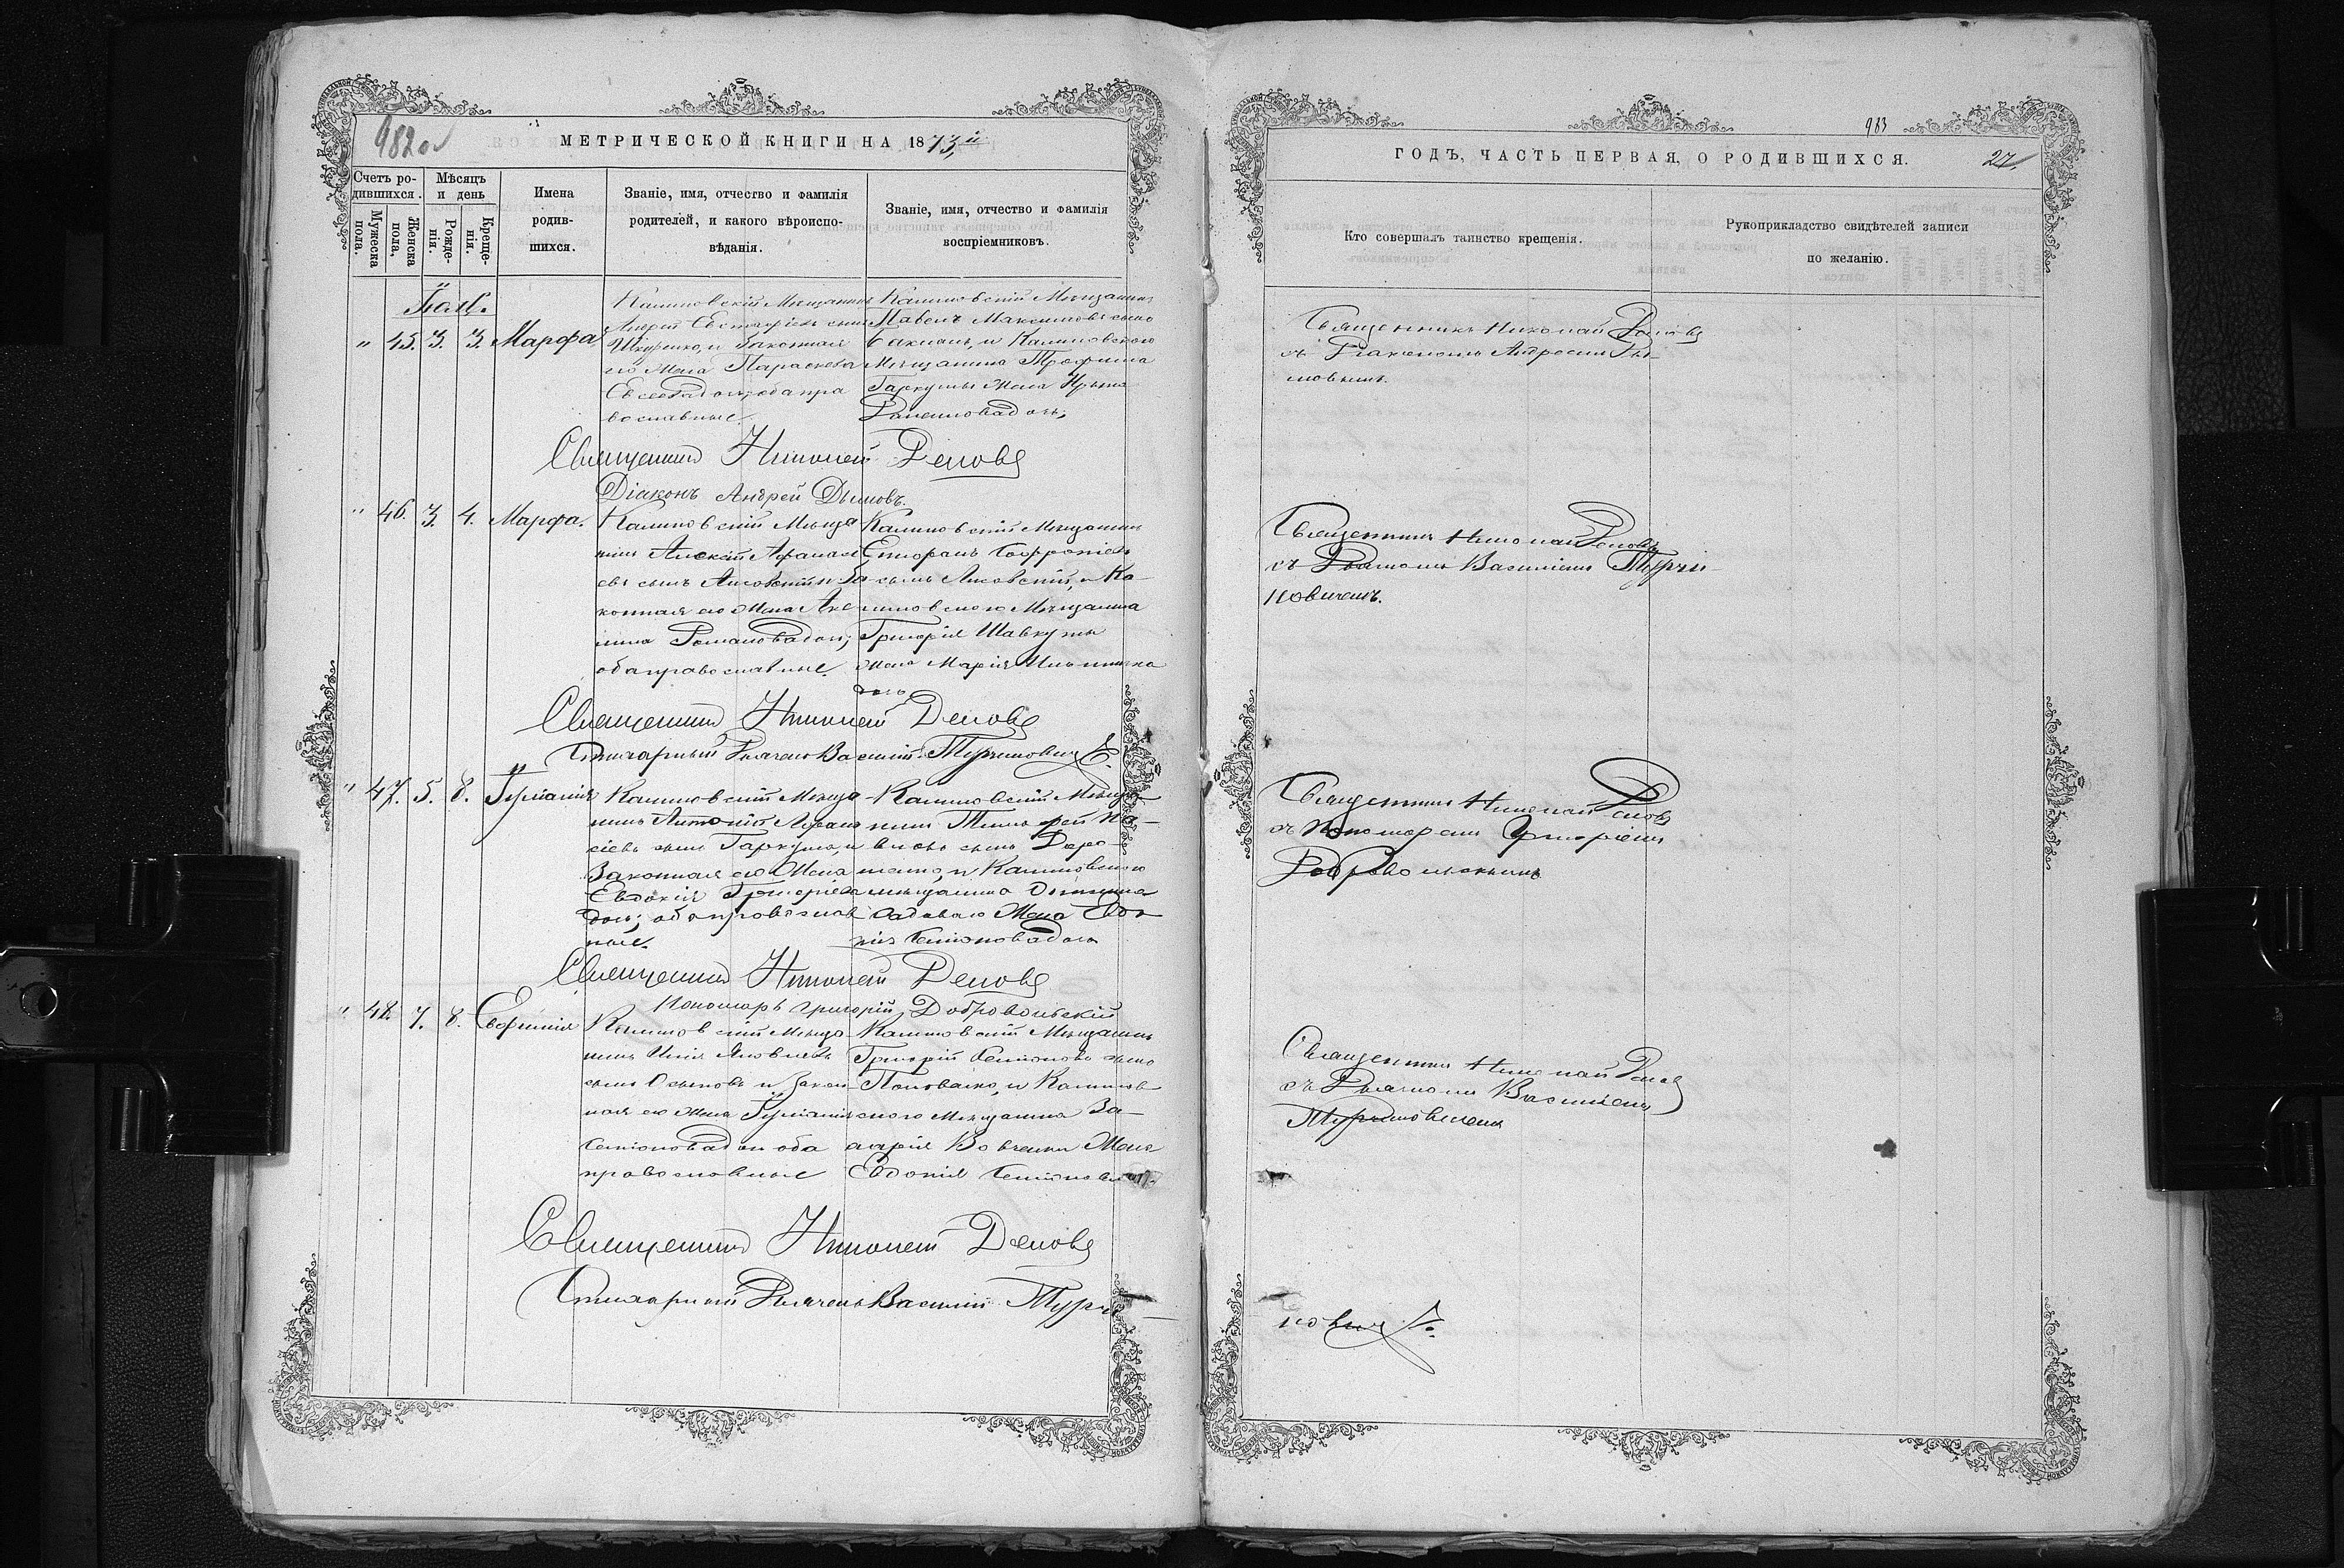 982 об
МЕТРИЧЕСКОЙ КНИГИ НА 1873й
Счетъ ро-
дившихся.
Мужеска
пола.
Женска
пола.
Мѣсяцъ
и день
Рожде-
нія.
Креще-
нія.
Имена
родив-
шихся.
Званіе, имя, отчество и фамилія
родителей, и какого вѣроиспо-
вѣданія.
Званіе, имя, отчество и фамилія
воспріемниковъ.
Іюль.
" 45. 3. 3. Марфа
Калиновскій Мѣщанинъ
Андрей Евстафіевъ сынъ
и законная
его жена Параскева
дочь, оба пра
вославные.
Калиновскій Мѣщанинъ
Павелъ Максимовъ сынъ
и Калиновскаго
Мѣщанина Трофима
Гаркуши жена Ирина
дочь,
Священникъ Николай
Діаконъ Андрей Дымовъ.
" 46. 3. 4. Марфа.
Калиновскій Мѣща
нинъ Алексій Афанасі
евъ сынъ Лисовскій и За
конная его жена Аке
лина Романова дочь;
оба православные.
Калиновскій Мѣщанинъ
сынъ Лисовскій, и Ка-
линовскаго Мѣщанина
Григорія Шавкуны
жена Марія
дочь
Священникъ Николай
Стихарный Дьячекъ Василій Турчиновичъ
" 47. 5. 8. Іуліанія
Калиновскій Мѣща-
нинъ Антоній Афана
сіевъ сынъ Гаркуша, и
Законная его жена
Евдокія Григоріева
дочь; оба православ
ные.
Калиновскій Мѣща
нинъ Тимофей Па-
вловъ сынъ Доро-
шенко, и Калиновскаго
мѣщанина
жена Евдо
кія Семіонова дочь
Священникъ Николай
Пономарь Григорій Добровольскій
" 48. 7. 8. Евфимія
Калиновскій Мѣща-
нинъ Илія Яковлевъ
сынъ Осиповъ и Закон
ная его жена Іуліанія
Семіонова дочь оба
православные
Калиновскій Мѣщанинъ
Григорій Семіоновъ сынъ
и Калинов
скаго Мѣщанина За-
харія Вовченка жена
Евдокія Семіонова
Священникъ Николай
Стихарный Дьячекъ Василій Турчи
983
ГОДЪ, ЧАСТЬ ПЕРВАЯ, О РОДИВШИХСЯ.
27.
Кто совершалъ таинство крещенія.
Рукоприкладство свидѣтелей записи
по желанію.
Священникъ Николай
съ Діакономъ Андреемъ Ды-
мовымъ.
Священникъ Николай
съ Дьячкомъ Василіемъ Турчи-
новичемъ.
Священникъ Николай
съ Пономаремъ Григоріемъ
Добровольскимъ
Священникъ Николай
съ Дьячкомъ Василіемъ
Турчиновичемъ
новичъ